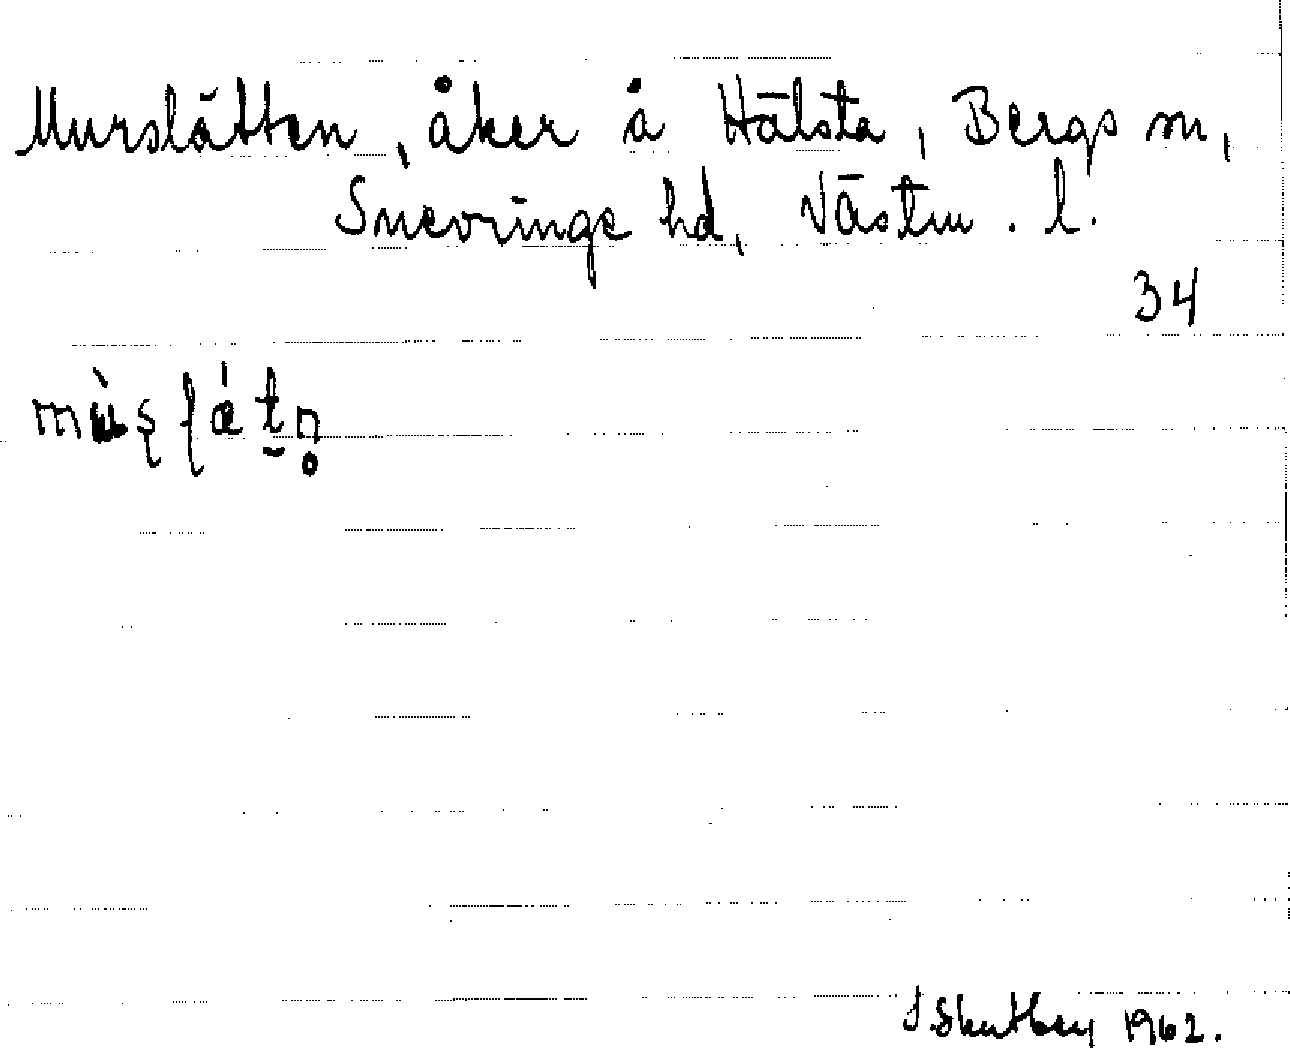 Murslätten, åker å Hälsta, Bergs sn,
Snevringe hd, Västm. l.
34
1962.